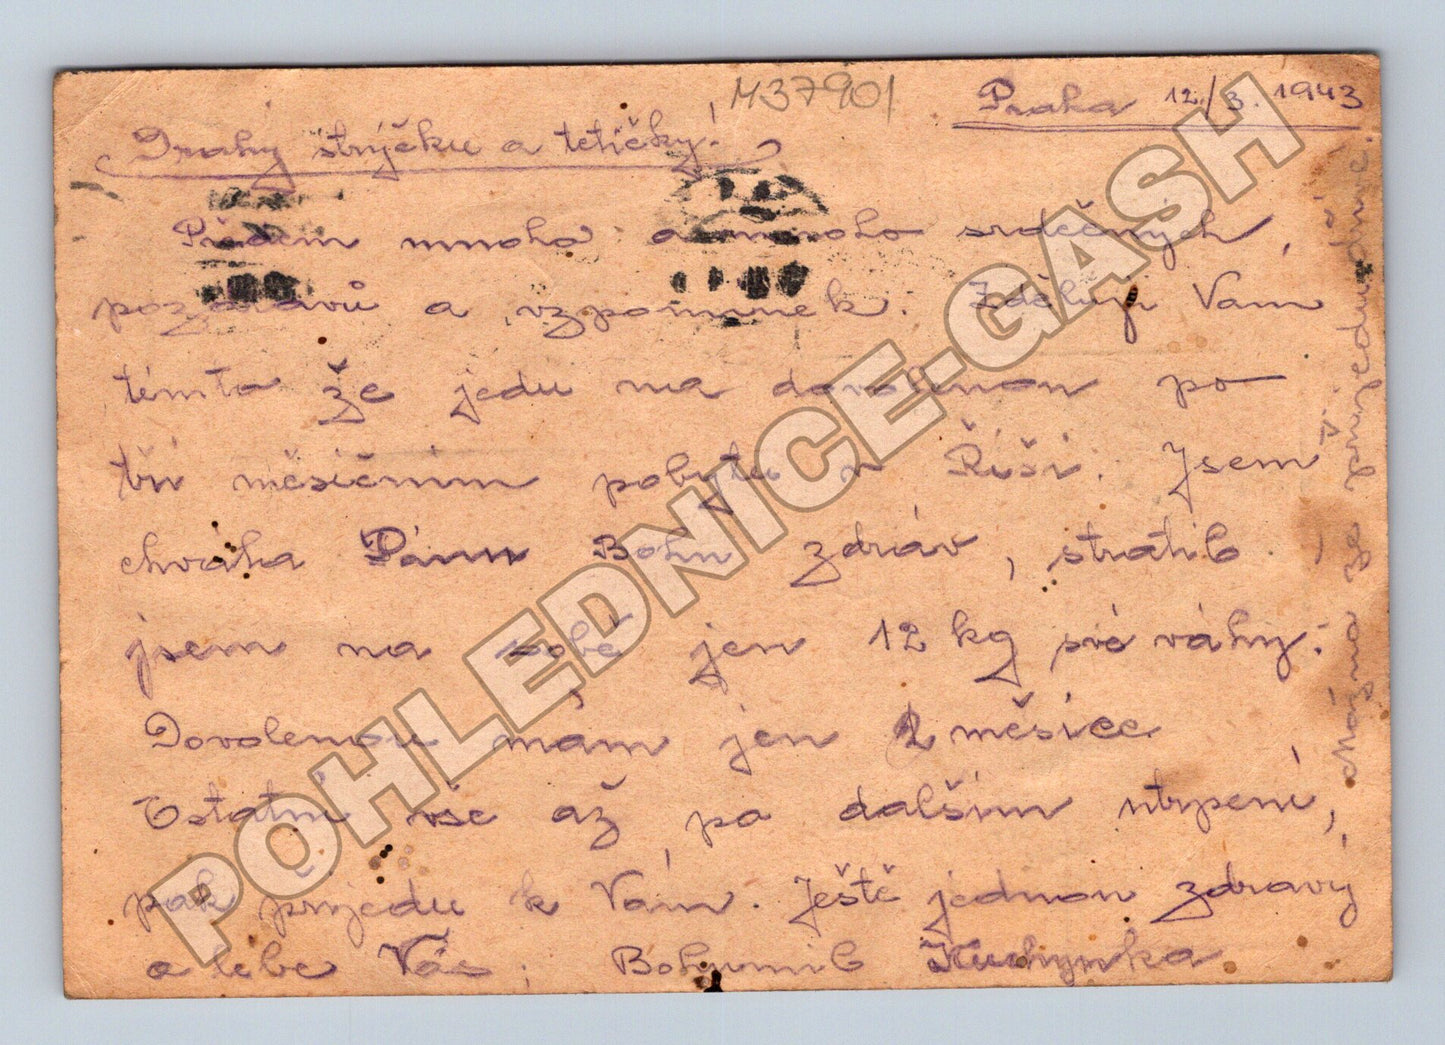 M37901
Praha 12/3. 1943
Drahý strýčku a tetičky!
Přidem mnoho a mnoho srdečných,
pozdravů a vzpomínek. Zděluji Vám
tímto že jedu na dovolenou po
tří měsíčním pobytu v Říši. Jsem
chvála Pánu Bohu zdráv, stratil
jsem na sobě jen 12 kg své váhy.
Dovolenou mám jen 2 měsíce
Ostatní vše až po dalším utrpení,
pak přijedu k Vám. Ještě jednou zdravý
a tebe Vás, Bohumil Kuchynka
Možná že přijedu dříve.
POHLEDNICE-GASH